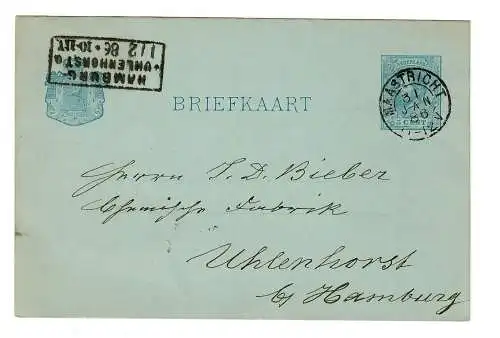 HAMBURG-
*UHLENHORST*
1/2 86 * 10-11V.
BRIEFKAART
MAASTRICHT
31
JAN
86
CENT
Herrn T. D. Bieber
Chemische Fabrik
Uhlenhorst
b/ Hamburg